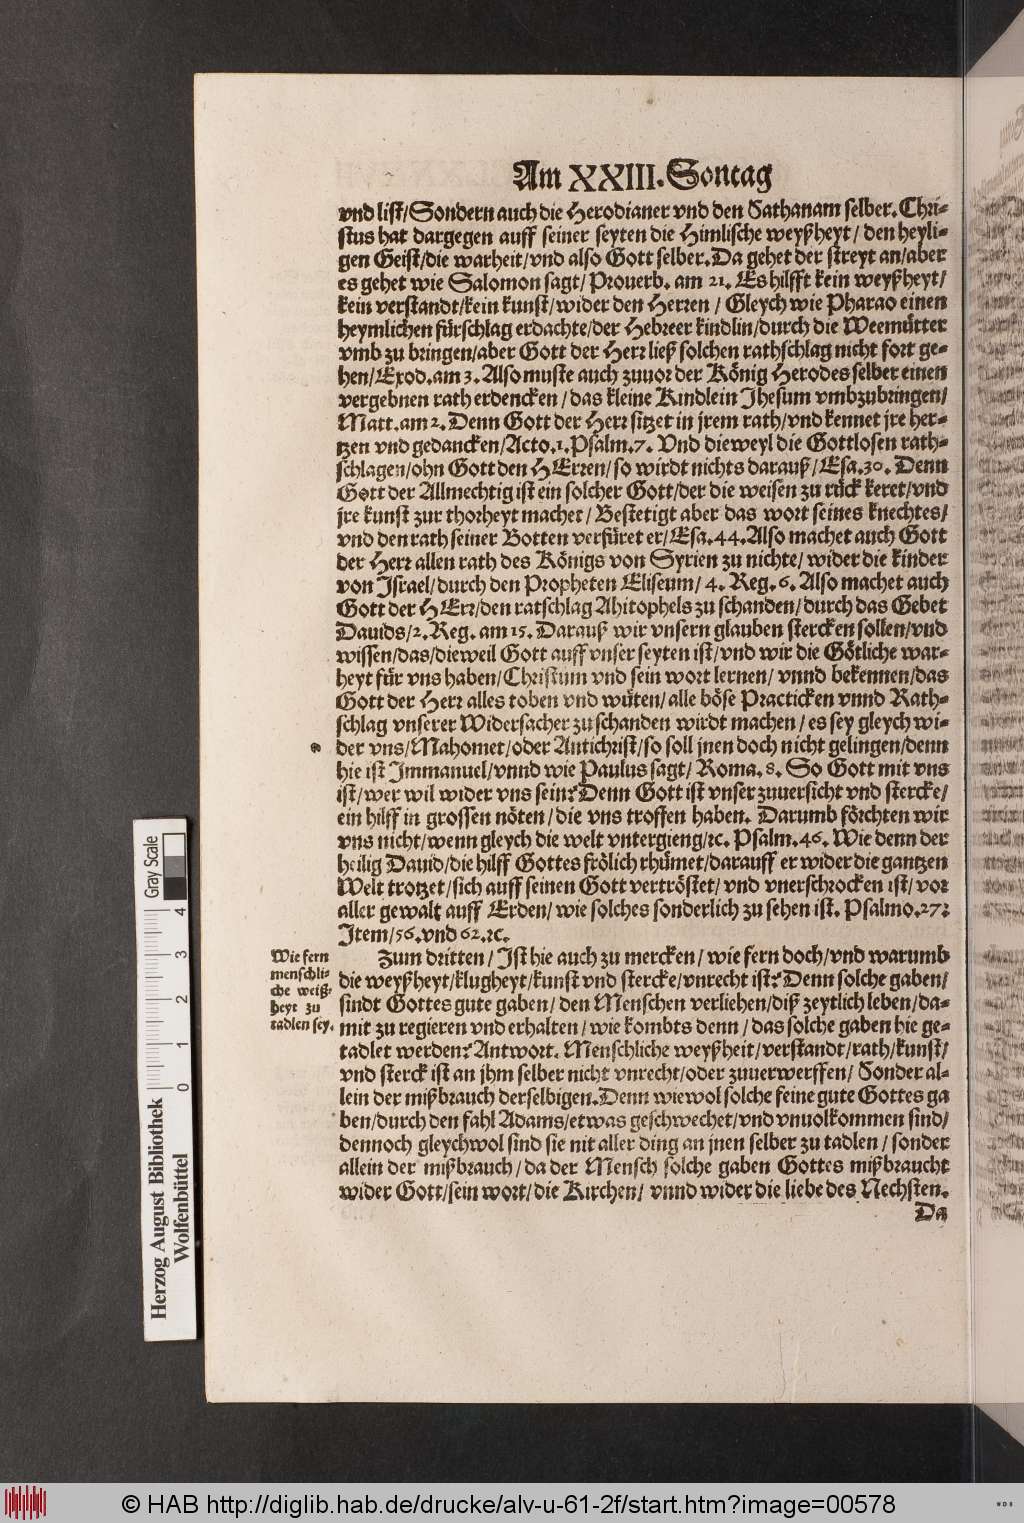 Am XXIII. Sontag
vnd list/Sondern auch die Herodianer vnd den Sathanam selber. Chri-
stus hat dargegen auff seiner seyten die Himlische weyßheyt/ den heyli-
gen Geist/die warheit/vnd also Gott selber. Da gehet der streyt an/aber
es gehet wie Salomon sagt/ Prouerb. am 21. Es hilfft kein weyßheyt/
kein verstandt/kein kunst/wider den Herren / Gleych wie Pharao einen
heymlichen fürschlag erdachte/der Hebreer kindlin/durch die Weemütter
vmb zu bringen/aber Gott der Herr ließ solchen rathschlag nicht fort ge-
hen/Exod. am 3. Also muste auch zuuor der König Herodes selber einen
vergebnen rath erdencken / das kleine Kindlein Jhesum vmbzubringen/
Matt. am 2. Denn Gott der Herr sitzet in jrem rath/vnd kennet jre her-
tzen vnd gedancken/Acto.1. Psalm.7. Vnd dieweyl die Gottlosen rath-
schlagen/ohn Gott den HErren/so wirdt nichts darauß/Esa.30. Denn
Gott der Allmechtig ist ein solcher Gott/der die weisen zu rück keret/vnd
jre kunst zur thorheyt machet/ Bestetigt aber das wort seines knechtes/
vnd den rath seiner Botten verfüret er/Esa.44. Also machet auch Gott
der Herr allen rath des Königs von Syrien zu nichte/ wider die kinder
von Jsrael/durch den Propheten Eliseum/ 4. Reg.6. Also machet auch
Gott der HErr/den ratschlag Ahitophels zu schanden/durch das Gebet
Dauids/2. Reg. am 15. Darauß wir vnsern glauben stercken sollen/vnd
wissen/das/dieweil Gott auff vnser seyten ist/vnd wir die Götliche war-
heyt für vns haben/Christum vnd sein wort lernen/ vnnd bekennen/das
Gott der Herr alles toben vnd wüten/alle böse Practicken vnnd Rath-
schlag vnserer Widersacher zu schanden wirdt machen/es sey gleych wi-
der vns/Mahomet/oder Antichrist/so soll jnen doch nicht gelingen/denn
hie ist Jmmanuel/vnnd wie Paulus sagt/ Roma.8. So Gott mit vns
ist/wer wil wider vns sein? Denn Gott ist vnser zuuersicht vnd stercke/
ein hilff in grossen nöten/die vns troffen haben. Darumb förchten wir
vns nicht/wenn gleych die welt vntergieng/rc. Psalm.46. Wie denn der
heilig Dauid/die hilff Gottes frölich rhümet/darauff er wider die gantzen
Welt trotzet/sich auff seinen Gott vertröstet/vnd vnerschrocken ist/vor
aller gewalt auff Erden/wie solches sonderlich zu sehen ist. Psalmo.27:
Jtem/56. vnd 62. rc.
Wie fern
menschli-
che weiß-
heyt zu
tadlen sey.
Zum dritten / Jst hie auch zu mercken/wie fern doch/vnd warumb
die weyßheyt/klugheyt/kunst vnd stercke/vnrecht ist? Denn solche gaben/
sindt Gottes gute gaben/den Menschen verliehen/diß zeytlich leben/da-
mit zu regieren vnd erhalten/wie kombts denn/das solche gaben hie ge-
tadlet werden? Antwort. Menschliche weyßheit/verstandt/rath/kunst/
vnd sterck ist an jhm selber nicht vnrecht/oder zuuerwerffen/ Sonder al-
lein der mißbrauch derselbigen. Denn wiewol solche feine gute Gottes ga
ben/durch den fahl Adams/etwas geschwechet/vnd vnuolkommen sind/
dennoch gleychwol sind sie nit aller ding an jnen selber zu tadlen/ sonder
allein der mißbrauch/da der Mensch solche gaben Gottes mißbraucht
wider Gott/sein wort/die Kirchen/ vnnd wider die liebe des Nechsten.
Da
Gray Scale
4
3
2
1
0
Herzog August Bibliothek
Wolfenbüttel
© HAB http://diglib.hab.de/drucke/alv-u-61-2f/start.htm?image=00578